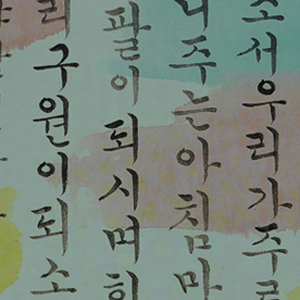 소서우리가주를
니주는아침마
팔이되시며환
리구원이되소